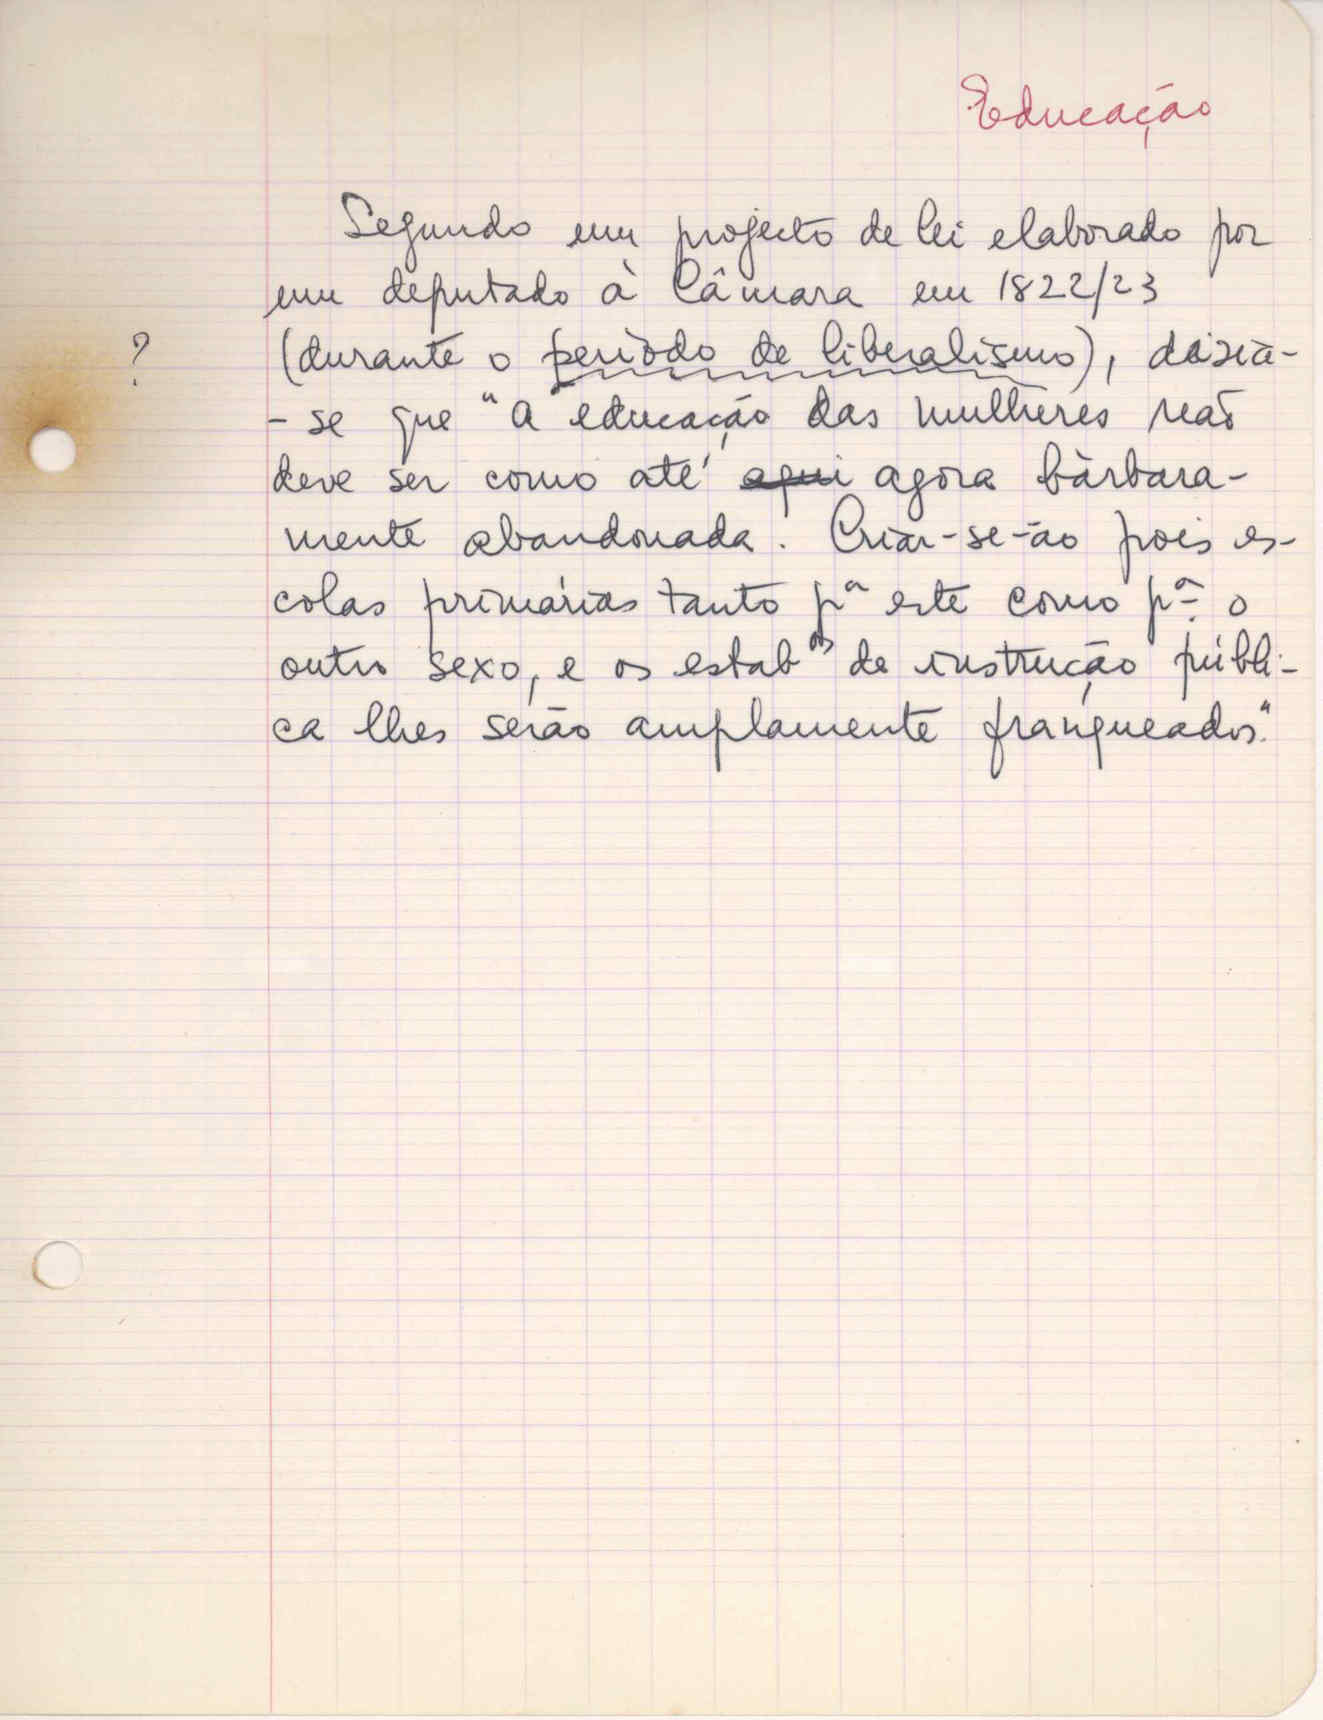 Educação
Segundo um projecto de lei elaborado por
um deputado à Câmara em 1822/23
? (durante o período de liberalismo), dizia-
-se que "a educação das mulheres não
deve ser como até aqui agora bàrbara-
mente abandonada. Criar-se-ão pois es-
colas primárias tanto pª este como pª o
outro sexo, e os estabºˢ de instrução públi-
ca lhes serão amplamente franqueados."